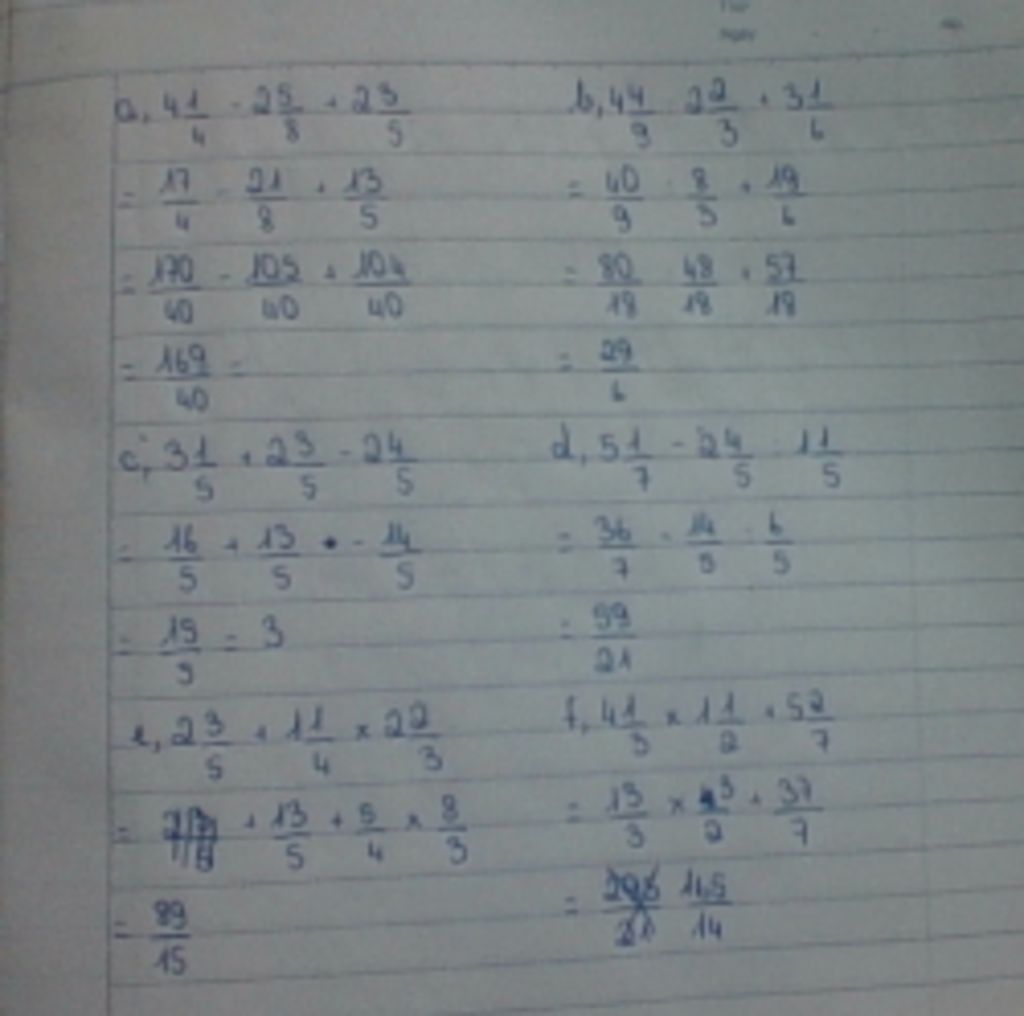 a, 4 1/4 - 2 5/8 + 2 3/5
= 17/4 - 21/8 + 13/5
= 170/40 - 105/40 + 104/40
= 169/40 =
b, 4 4/9 - 2 2/3 + 3 1/6
= 40/9 - 8/3 + 19/6
= 80/18 - 48/18 + 57/18
= 29/6
c, 3 1/5 + 2 3/5 - 2 4/5
= 16/5 + 13/5 - 14/5
= 15/5 = 3
d, 5 1/7 - 2 4/5 : 1 1/5
= 36/7 - 14/5 : 6/5
= 59/21
e, 2 3/5 + 1 1/4 x 2 2/3
= + 13/5 + 5/4 x 8/3
= 89/15
f, 4 1/3 x 1 1/2 + 5 2/7
= 13/3 x 3/2 + 37/7
= 165/14